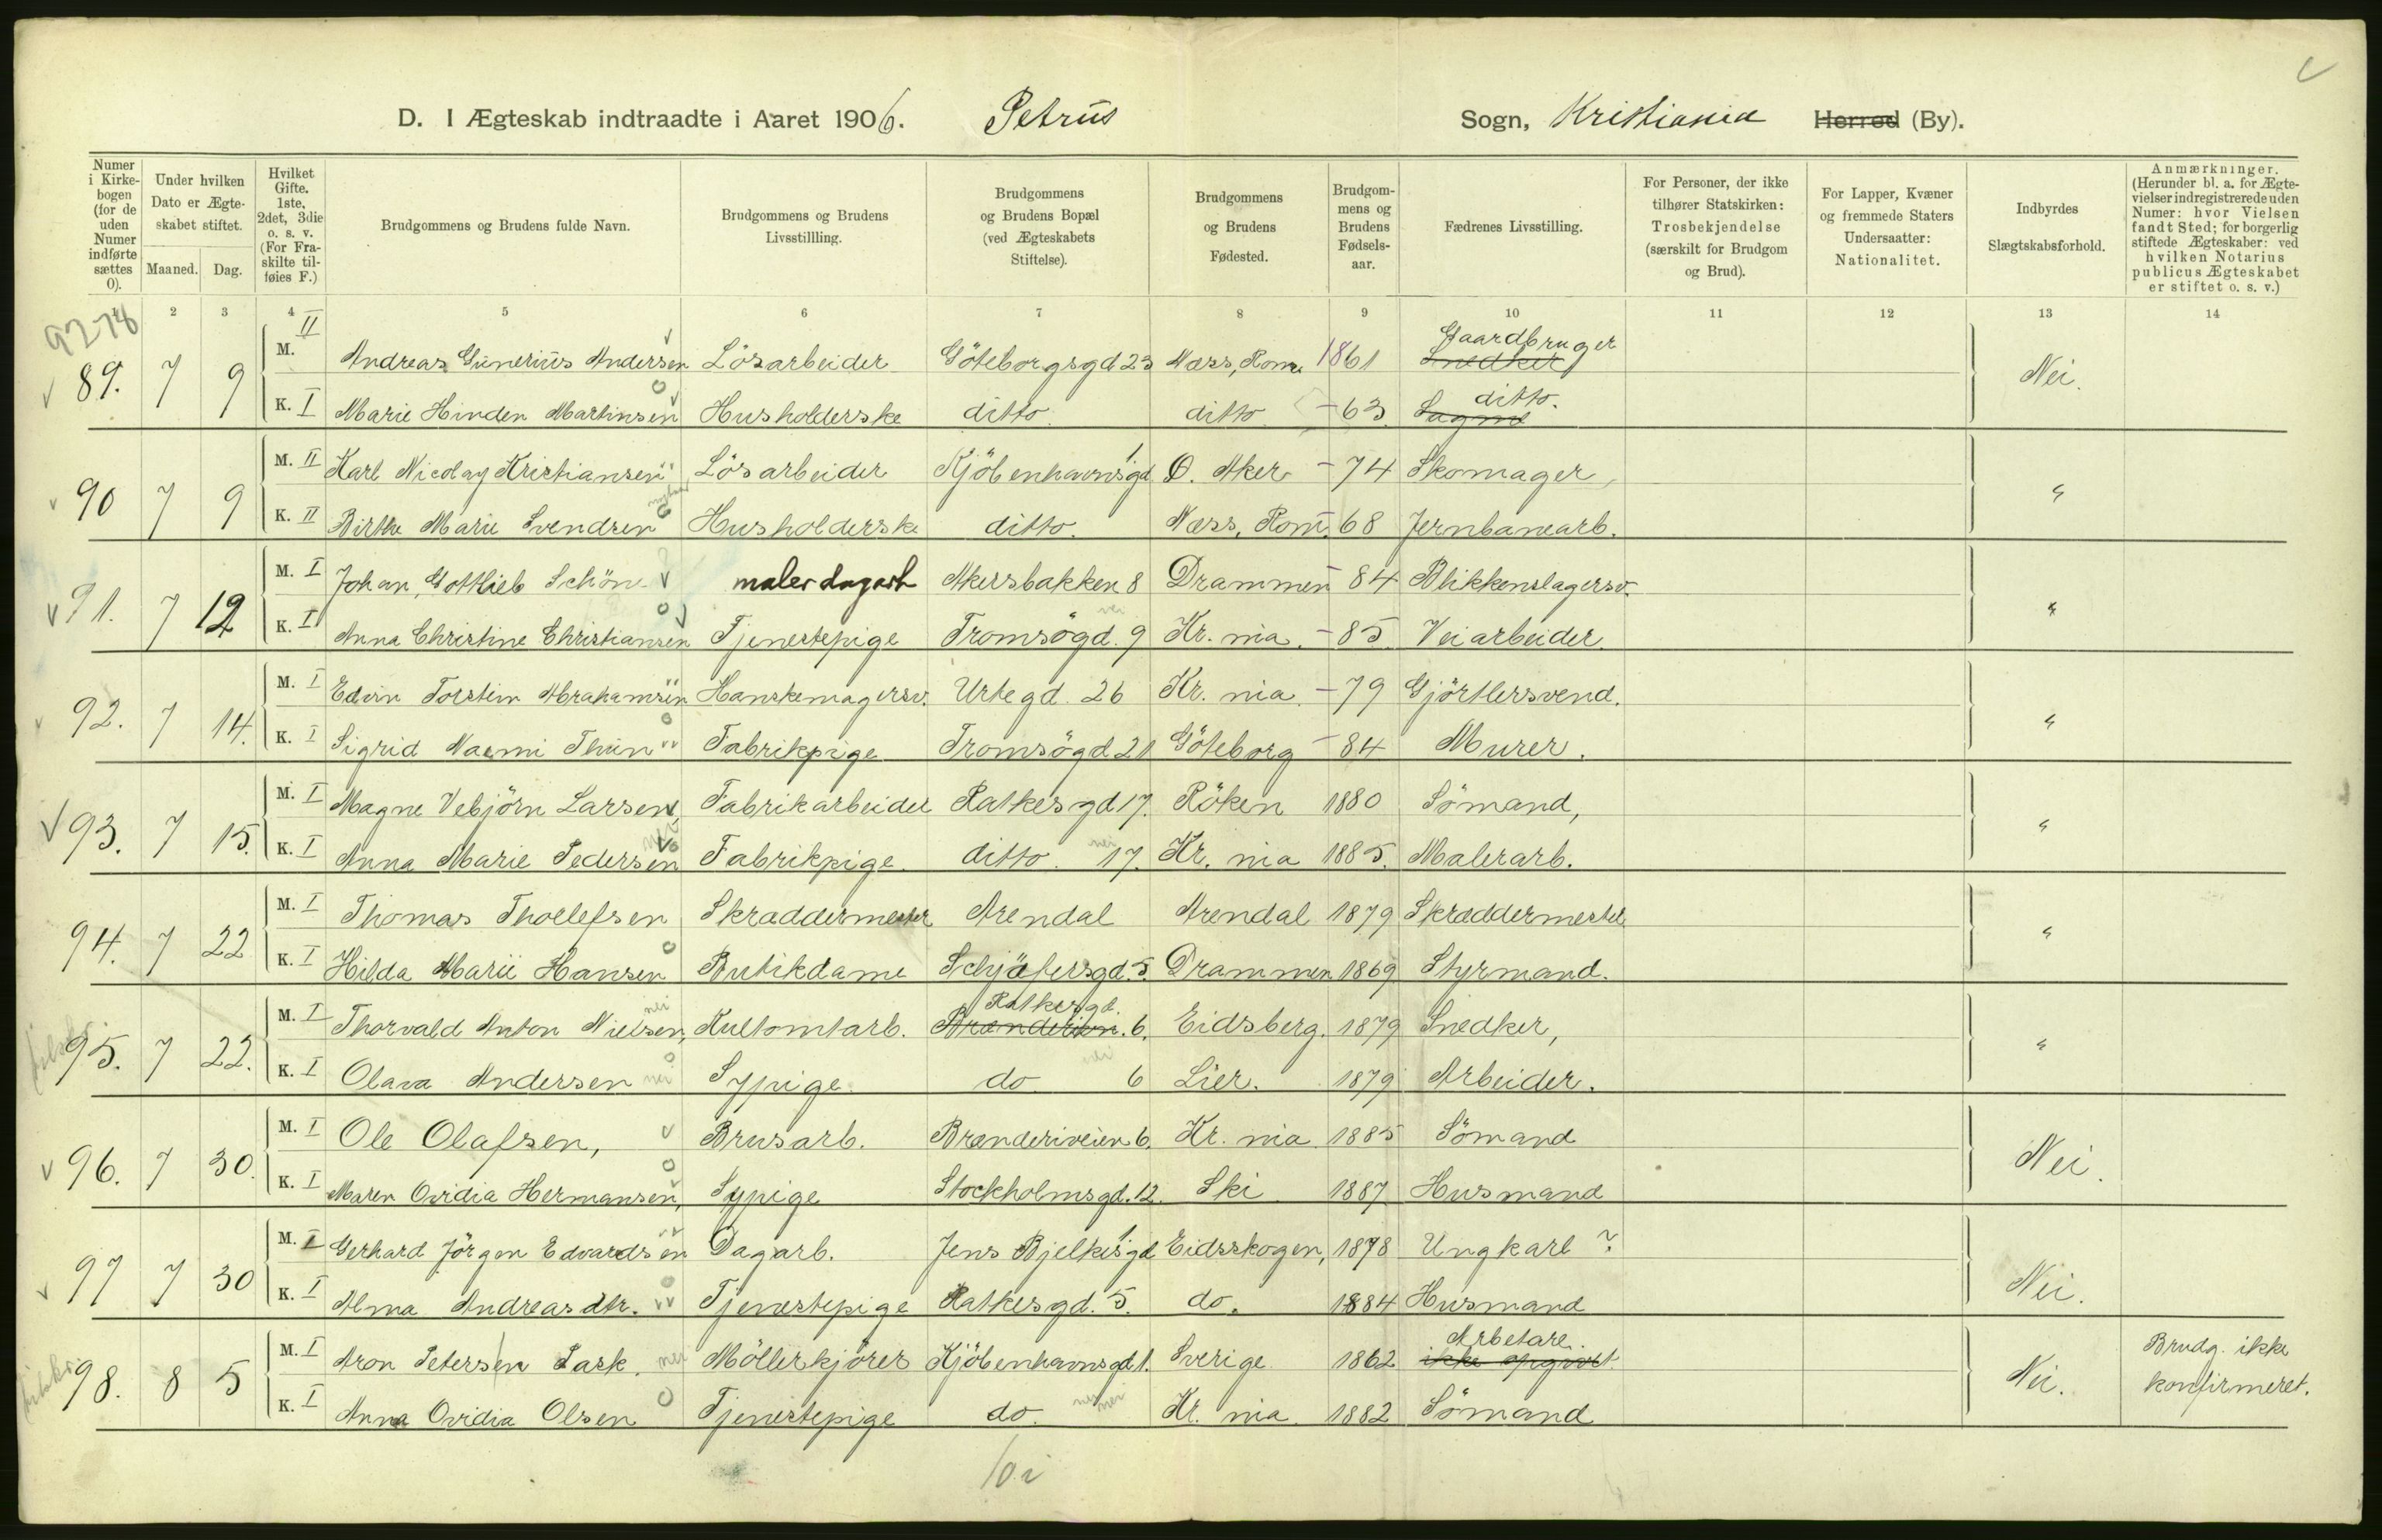 D. I Ægteskab indtraadte i Aaret 1906. Petrus Sogn, Kristiania Herred (By).
Numer i Kirkebogen (for de uden Numer indførte sættes 0). Under hvilken Dato er Ægteskabet stiftet. Maaned. Dag. Hvilket Gifte. 1ste, 2det, 3die o. s. v. (For Fraskilte tilføies F.) Brudgommens og Brudens fulde Navn. Brudgommens og Brudens Livsstillling. Brudgommens og Brudens Bopæl (ved Ægteskabets Stiftelse). Brudgommens og Brudens Fødested. Brudgommens og Brudens Fødselsaar. Fædrenes Livsstilling. For Personer, der ikke tilhører Statskirken: Trosbekjendelse (særskilt for Brudgom og Brud). For Lapper, Kvæner og fremmede Staters Undersaatter: Nationalitet. Indbyrdes Slægtskabsforhold. Anmærkninger. (Herunder bl. a. for Ægtevielser indregistrerede uden Numer: hvor Vielsen fandt Sted; for borgerlig stiftede Ægteskaber: ved hvilken Notarius publicus Ægteskabet er stiftet o. s. v.)
1 2 3 4 5 6 7 8 9 10 11 12 13 14
9278
89. 7 9 M. II Andreas Gunerius Andersen Lösarbeider Göteborgsgd 23 Næss, Rom. 1861 Snedker Gaardbruger Nei.
K. I Marie Hinden Martinsen Husholderske ditto ditto - 63. ditto.
90 7 9 M. II Karl Nicolay Kristiansen Lösarbeider Kjöbenhavnsgd 1 Ö. Aker - 74 Skomager, "
K. II Birthe Marie Svendsen Husholderske ditto. Næss, Rom. - 68 Jernbanearb.
91. 7 12 M. I Johan, Gottlieb Schön malerdagarb Akersbakken 8 Drammen - 84 Blikkenslagersv. "
K. I Anna Christine Christiansen Tjenestepige Tromsögd. 9 Kr. nia. - 85. Veiarbeider.
92. 7 14. M. I Edvin Torstein Abrahamsen Hanskemagersv. Urtegd. 26 Kr. nia. - 79 Gjörtlersvend. "
K. I Sigrid Naemi Thun Fabrikpige Tromsögd 21 Göteborg - 84 Murer.
93. 7 15. M. I Magne Vebjörn Larsen, Fabrikarbeider Ratkesgd 17. Röken 1880 Sömand, "
K. I Anna Marie Pedersen Fabrikpige. ditto. 17. Kr. nia 1885. Malerarb.
94. 7 22 M. I Thomas Thollefsen Skræddermester Arendal Arendal 1879 Skræddermester "
K. I Hilda Marie Hansen Butikdame Schjöfersgd. 5. Drammen 1869 Styrmand.
95. 7 22. M. I Thorvald Anton Nielsen, Kultomtarb. Brænderivn. Ratkesgd. 6. Eidsberg. 1879 Snedker, "
K. I Olava Andersen Sypige. do. 6 Lier. 1879 Arbeider.
96. 7 30. M. I Ole Olafsen, Brusarb. Brænderiveien 6. Kr. nia 1885 Sömand Nei.
K. I Maren Ovidia Hermansen, Sypige Stockholmsgd. 12. Ski 1887 Husmand
97 7 30 M. I Gerhard Jörgen Edvardsen Dagarb. Jens Bjelkesgd 1 Eidsskogen, 1878 Ungkarl ? Nei.
K. I Alma Andreasdtr. Tjenestepige Ratkesgd. 5. do. 1884 Husmand
98. 8 5 M. I Aron Petersen Lark. Möllerkjörer Kjöbenhavnsgd 1. Sverige. 1862 ikke opgivet. Arbetare. Nei. Brudg. ikke konfirmeret.
K. I Anna Ovidia Olsen Tjenestepige do. Kr. nia. 1882 Sömand